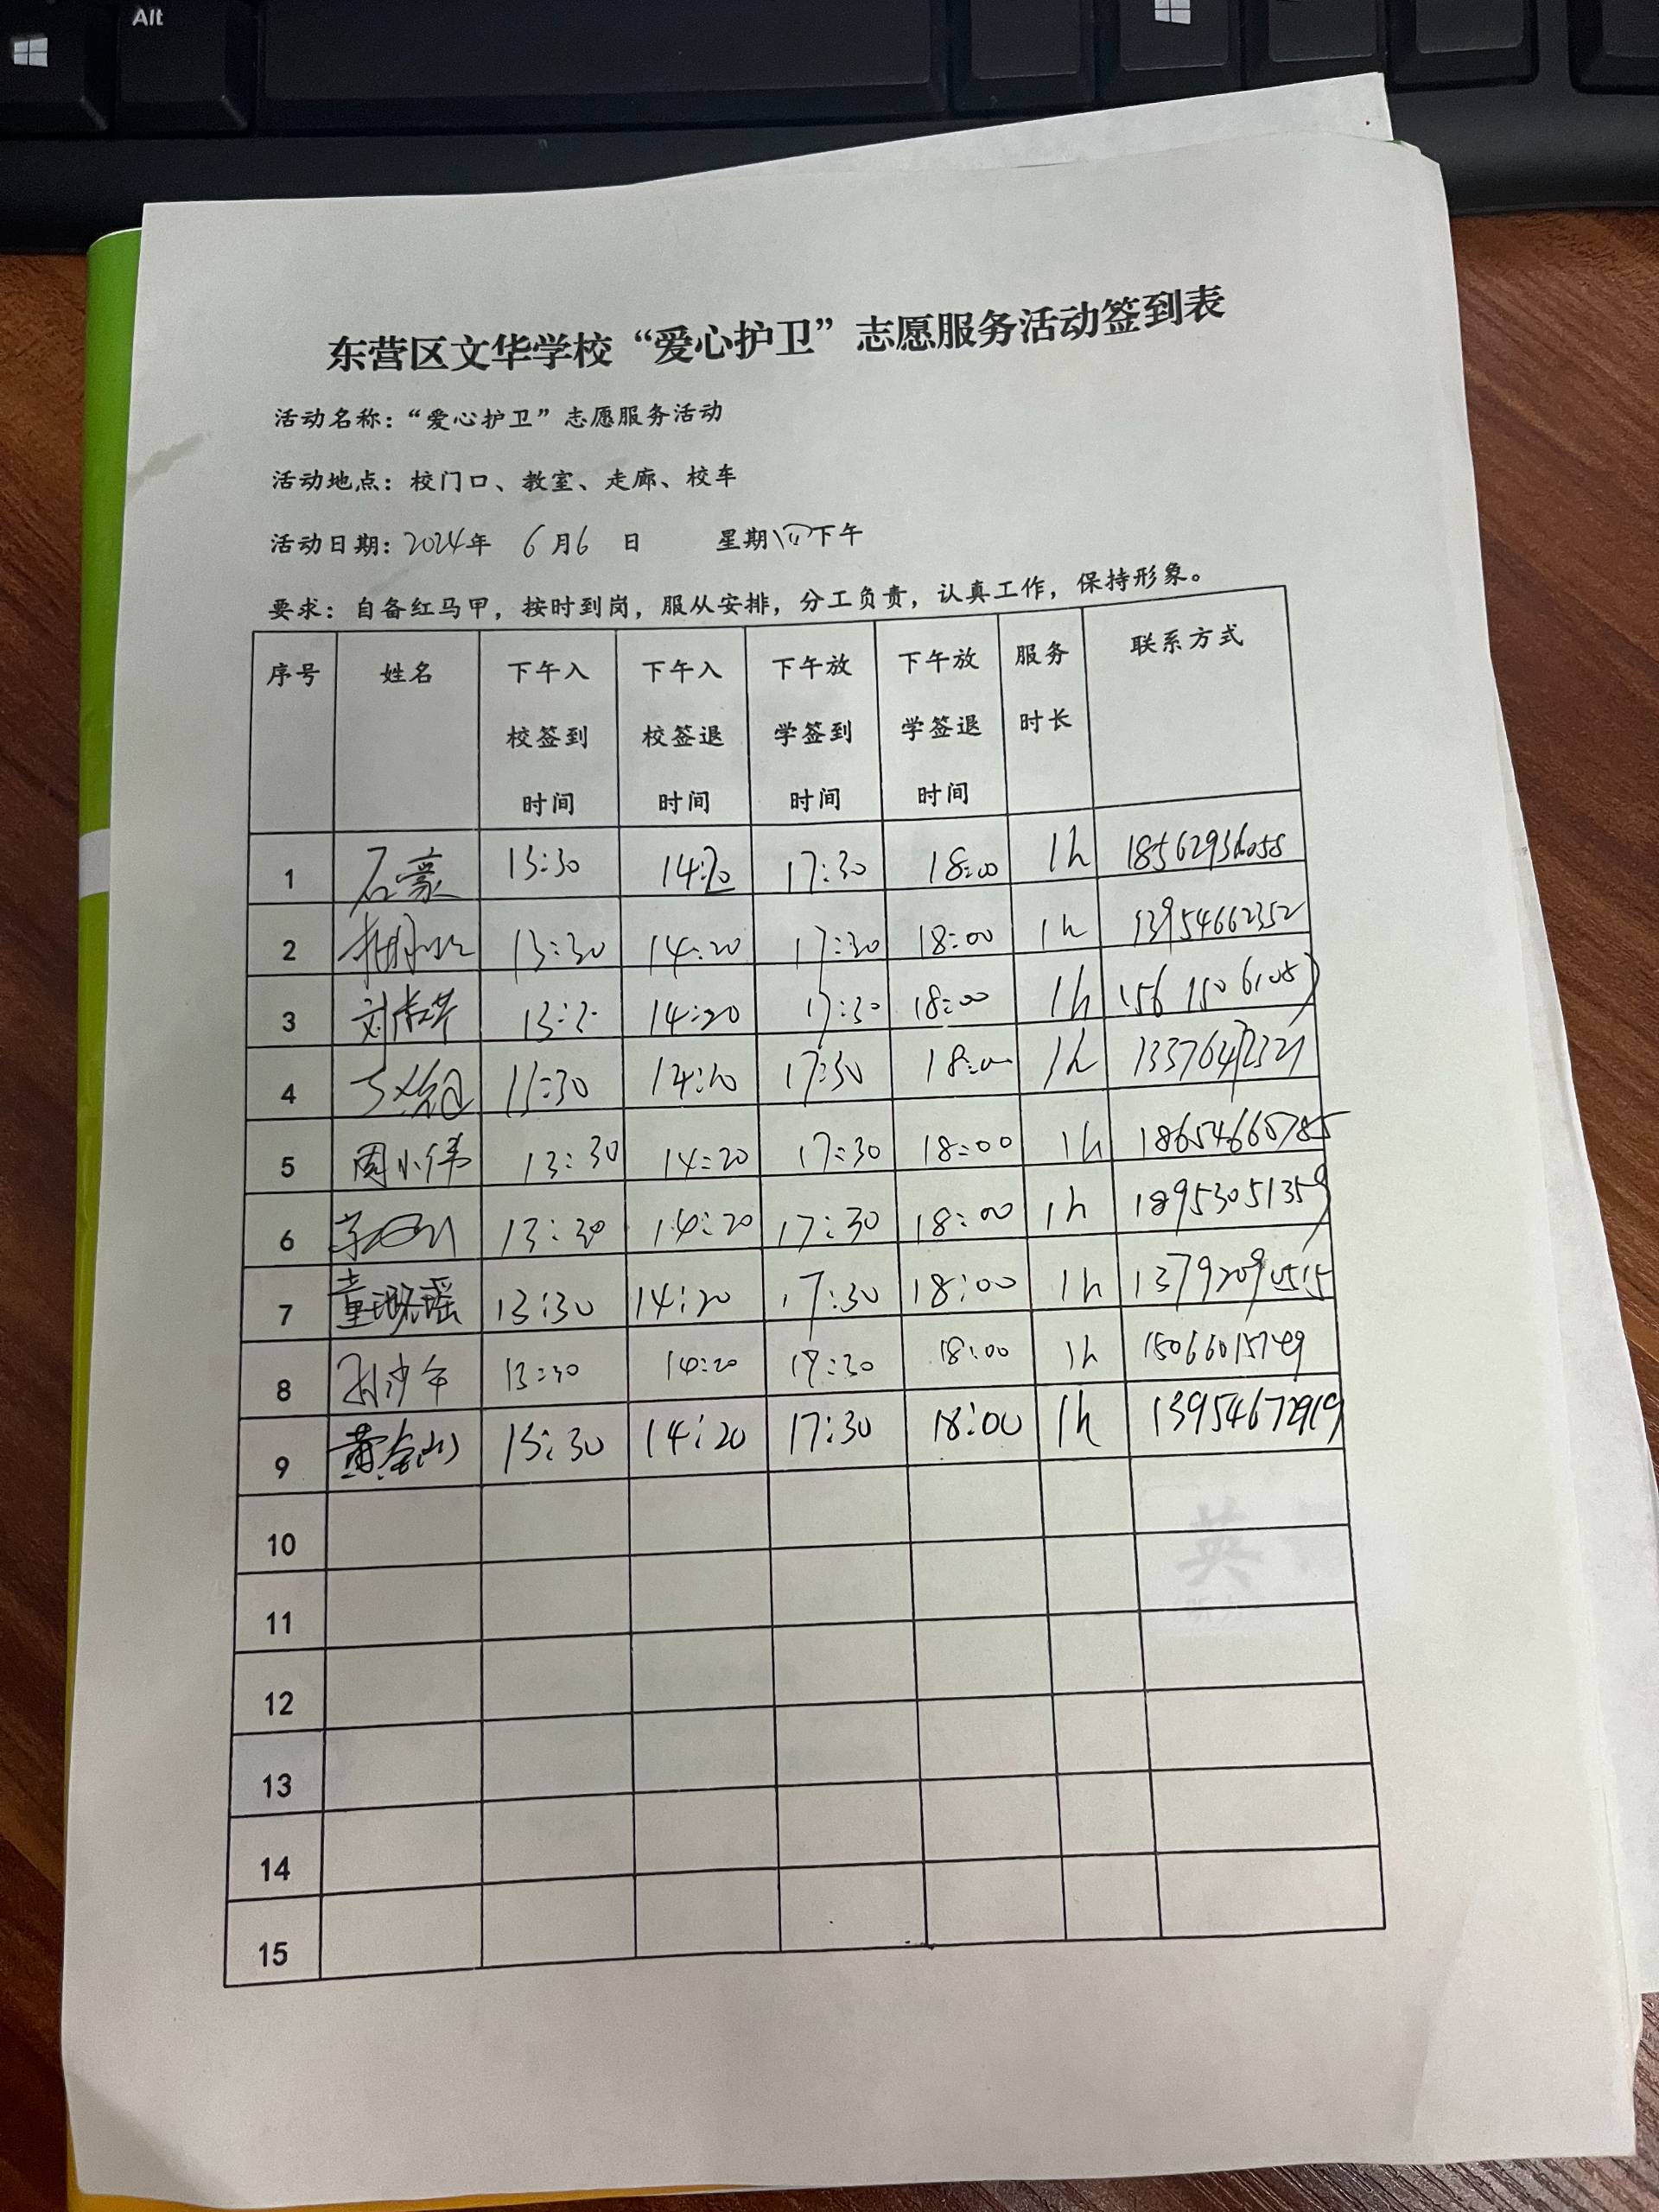 Alt
东营区文华学校“爱心护卫”志愿服务活动签到表
活动名称：“爱心护卫”志愿服务活动
活动地点：校门口、教室、走廊、校车
活动日期：2024年 6月6 日 星期四下午
要求：自备红马甲，按时到岗，服从安排，分工负责，认真工作，保持形象。
序号 姓名 下午入校签到时间 下午入校签退时间 下午放学签到时间 下午放学签退时间 服务时长 联系方式
1 石豪 13:30 14:20 17:30 18:00 1h
2 13:30 14:20 17:30 18:00 1h 13954662352
3 14:20 17:30 18:00 1h
4 13:30 17:30 18:00 1h
5 周小伟 13:30 14:20 17:30 18:00 1h 18654660785
6 13:30 14:20 17:30 18:00 1h 18953051359
7 童璐瑶 13:30 14:20 17:30 18:00 1h 13792090515
8 13:30 14:20 17:30 18:00 1h
9 黄金山 13:30 14:20 17:30 18:00 1h 13954672919
10
11
12
13
14
15
英